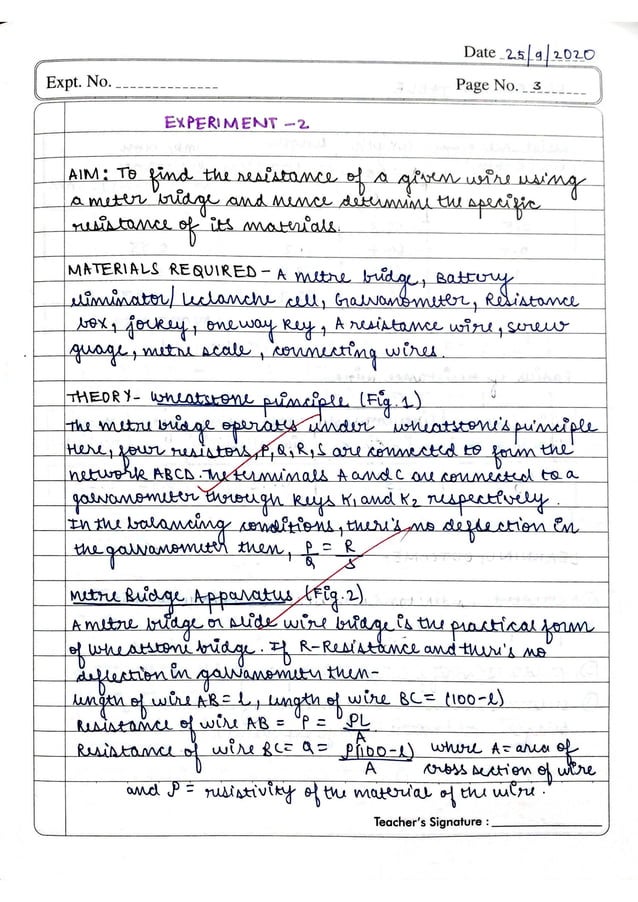 Date 25/9/2020
Expt. No.
Page No. 3
EXPERIMENT -2
AIM: To find the resistance of a given wire using
a meter bridge and hence determine the specific
resistance of its materials.
MATERIALS REQUIRED - A metre bridge, Battery
eliminator/ Leclanche cell, Galvanometer, Resistance
box, jockey, one way key, A resistance wire, screw
guage, metre scale, connecting wires.
THEORY- Wheatstone principle (Fig. 1)
The metre bridge operates under wheatstone's principle
Here, four resistors, P, Q, R, S are connected to form the
network ABCD. The terminals A and C are connected to a
galvanometer through keys K1 and K2 respectively.
In the balancing conditions, there's no deflection in
the galvanometer then, P/Q = R/S
Metre Bridge Apparatus (Fig. 2)
A metre bridge or slide wire bridge is the practical form
of wheatstone bridge. If R-Resistance and there's no
deflection in galvanometer then-
length of wire AB = l, length of wire BC = (100-l)
Resistance of wire AB = P = ρL/A
Resistance of wire BC = Q = ρ(100-l)/A where A = area of
cross section of wire
and ρ = resistivity of the material of the wire.
Teacher's Signature :